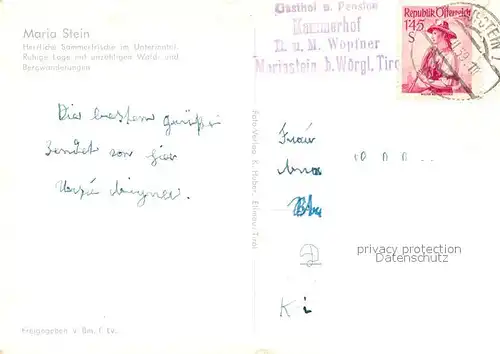 Maria Stein
Herrliche Sommerfrische im Unterinntal.
Ruhige Lage mit unzähligen Wald- und
Bergwanderungen
Gasthof u. Pension
Kammerhof
D. u. M. Wopfner
Mariastein b. Wörgl, Tirol
Republik Österreich
1.45
S
Die besten Grüße
sendet von hier
Foto-Verlag R. Huber, Ellmau/Tirol
Frau
privacy protection
DatenSchutz
Ki
Freigegeben v. Bm. f. Lv.